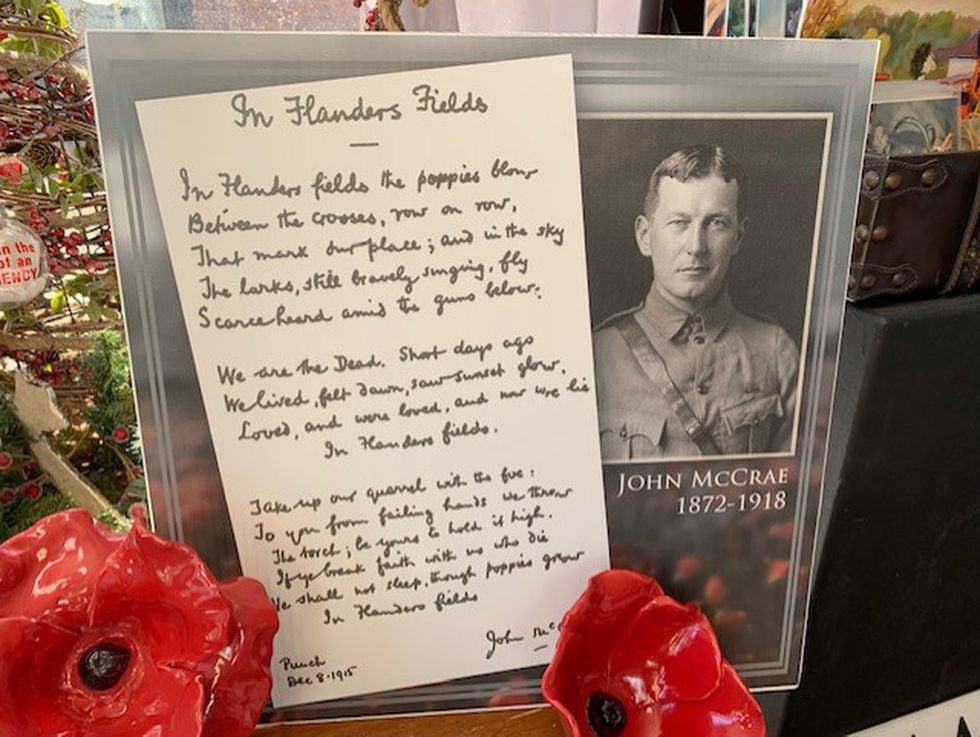 In Flanders Fields
In Flanders fields the poppies blow
Between the crosses, row on row,
That mark our place; and in the sky
The larks, still bravely singing, fly
Scarce heard amid the guns below.
We are the Dead. Short days ago
We lived, felt dawn, saw sunset glow,
Loved, and were loved, and now we lie
In Flanders fields.
Take up our quarrel with the foe:
To you from failing hands we throw
The torch; be yours to hold it high.
If ye break faith with us who die
We shall not sleep, though poppies grow
In Flanders fields
John Mc
Punch
Dec 8·1915
JOHN MCCRAE
1872-1918
in the
of an
ENCY